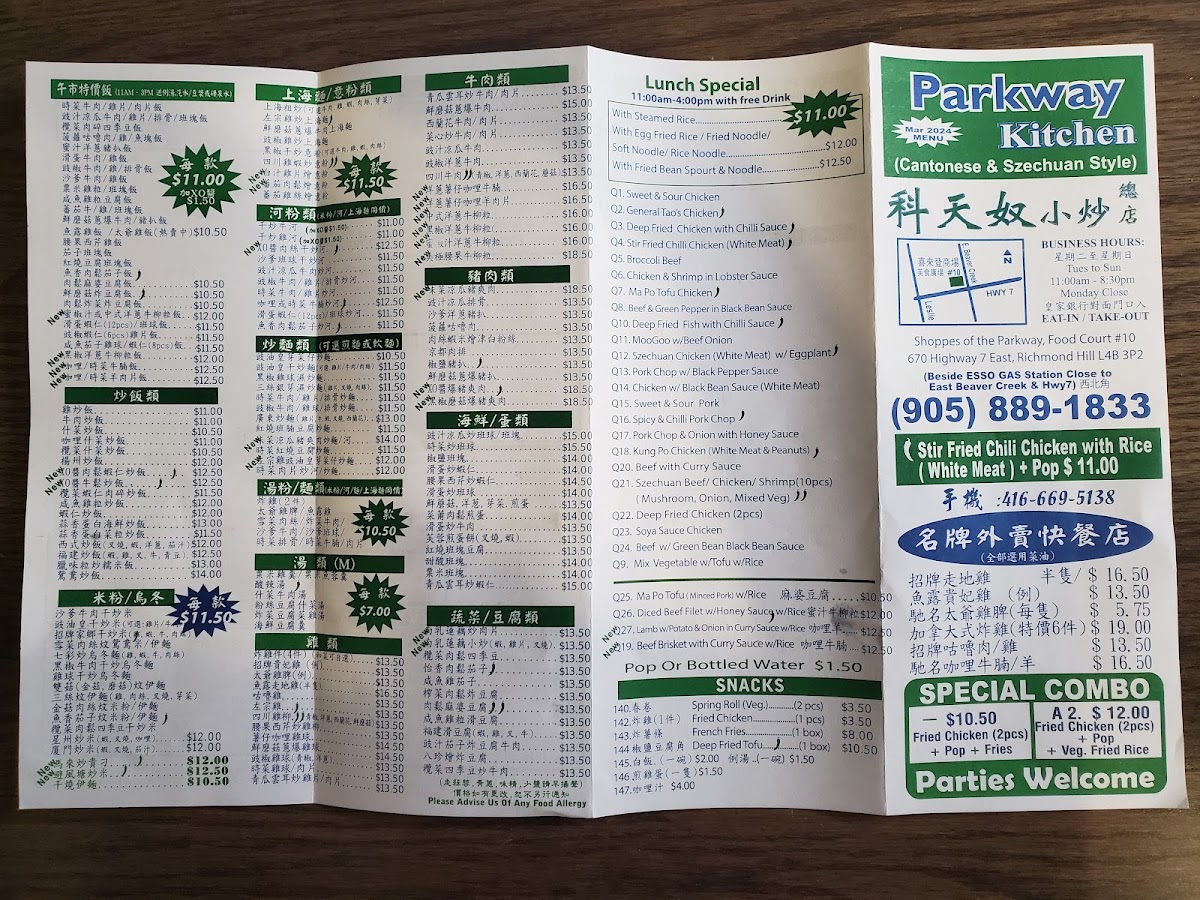 午市特價飯 (11AM - 3PM 送例湯,汽水/豆漿或樽裝水)
時菜牛肉/雞片/肉片飯
豉汁涼瓜牛肉/雞片/排骨/班塊飯
欖菜肉碎四季豆飯
菠蘿咕嚕肉/雞/魚塊飯
蜜汁洋蔥豬扒飯
滑蛋牛肉/雞飯
豉椒牛肉/雞/排骨飯
沙爹牛肉/雞飯
粟米雞粒/班塊飯
咸魚雞粒豆腐飯
蕃茄牛/雞/班塊飯
鮮蘑菇蔥爆牛肉/豬扒飯
魚露雞飯/太爺雞飯(熱賣中)$10.50
腰果西芹雞飯
茄子班塊飯
紅燒豆腐班塊飯
魚香肉鬆茄子飯
肉鬆麻婆豆腐飯 $10.50
鮮蘑菇炸豆腐飯 $10.50
肉鬆炸菜炸豆腐飯 $10.50
New 蜜椒汁或中式洋蔥牛柳粒飯 $12.00
滑蛋蝦仁(12pcs)/班球飯 $11.50
豉椒蝦仁(6pcs)雞片飯 $11.50
咸魚茄子雞球/蝦仁(8pcs)飯 $11.50
New 黑椒洋蔥牛柳粒飯 $12.00
New 咖哩/時菜牛腩飯 $12.00
New 咖哩/時菜羊片飯 $12.50
每款
$11.00
加XO醬
$1.50
炒飯類
雞炒飯 $11.00
牛肉炒飯 $11.00
什菜炒飯 $11.00
咖哩什菜炒飯 $11.50
欖菜什菜炒飯 $11.50
楊州炒飯 $12.00
New XO醬肉鬆蝦仁炒飯 $12.50
New XO醬牛鬆炒飯 $12.50
欖菜蝦仁肉碎炒飯 $11.50
咸魚雞粒炒飯 $12.00
蝦仁炒飯 $12.00
蒜香蛋白海鮮炒飯 $13.00
蒜香蛋白菜粒炒飯 $11.50
西式炒飯(叉燒,蝦,洋蔥,茄汁) $12.50
福建炒飯(蝦,雞,叉,牛,青豆) $12.50
臘味粒炒糯米飯 $13.00
鴛鴦炒飯 $14.00
米粉/烏冬
沙爹牛肉干炒米
豉油皇干炒米
招牌家鄉干炒米
雪菜肉絲炆鴛鴦米/伊麵
七彩炒烏冬麵(雞,蝦,牛,肉絲)
黑椒牛肉干炒烏冬麵
雞球干炒烏冬麵
雙菇(金菇,蘑菇)炆伊麵
三絲炆伊麵(雞,肉絲,叉燒,芽菜)
金菇肉絲炆米粉/伊麵
魚香茄子炆米粉/伊麵
欖菜肉鬆四季豆干炒米
星州炒米(蝦,叉燒,咖哩) $12.00
廈門炒米(蝦,叉燒,茄汁) $12.00
New 馬來炒貴刁 $12.00
New 避風塘炒米 $12.50
干燒伊麵 $10.50
每款
$11.50
上海麵/意粉類
上海粗炒
左宗雞炒上海麵
鮮蘑菇蔥爆牛肉上海麵
豉椒雞炒上海麵
黑椒干炒意粉
四川雞蝦炒意粉
New 豉汁雞片燴意粉
New 蕃茄肉鬆燴意粉
蕃茄雞絲燴意粉
每款
$11.50
河粉類(米粉/河/上海麵同價)
干炒牛河 $11.00
干炒雞河 $11.00
New XO醬肉絲干炒河 $12.50
沙爹班球干炒河 $11.50
豉汁涼瓜牛肉炒河 $11.50
豉椒牛肉/雞片/排骨炒河 $11.50
時菜牛肉/雞片炒河 $11.50
咖哩或時菜牛腩炒河 $12.50
滑蛋蝦仁(12pcs)/班球炒河 $11.50
魚香肉鬆茄子炒河 $11.50
炒麵類 (可選煎麵或軟麵)
豉油皇芽菜仔炒麵 $10.50
豉油皇干炒麵 $11.50
黑椒雞球濕炒麵 $11.50
三絲銀芽濕炒麵 $11.50
時菜牛肉/雞/排骨炒麵 $11.50
豉椒牛肉/雞/排骨炒麵 $11.50
廣東炒麵 $13.00
紅燒班腩豆腐炒麵 $11.50
New 菜涼瓜豬爽肉炒麵/河 $14.00
時菜紅燒豆腐炒麵 $11.50
New 左宗雞豉油皇芽菜仔炒麵 $12.00
時菜肉片炒河/炒麵 $12.00
湯粉/麵類(米粉/河/麵/上海麵同價)
炸雞(2件)
太爺雞髀/魚露雞
雪菜肉絲/炸菜牛肉
沙爹牛肉/沙爹班球
時菜排骨/時菜牛腩/肉片
每款
$10.50
湯類 (M)
粟米雞羹/粟米魚蓉羹
酸辣湯
什菜牛肉湯
粉絲豆腐什菜湯
炸菜豆腐雞湯
海鮮豆腐羹
每款
$7.00
雞類
炸雞件(4件) $13.50
招牌貴妃雞(例) $13.50
太爺雞髀(例) $13.50
魚露走地雞(半隻) $16.50
咕嚕雞 $13.50
左宗雞 $13.50
四川雞柳 $13.50
腰果西芹雞柳 $13.50
薯仔咖哩雞球 $13.50
鮮蘑菇蔥爆雞球 $14.50
豉椒雞球 $13.50
時菜雞球/肉片 $13.50
青瓜雲耳炒牛肉/肉片 $13.50
牛肉類
青瓜雲耳炒牛肉/肉片 $13.50
鮮蘑菇蔥爆牛肉 $15.00
西蘭花牛肉/肉片 $13.50
菜心炒牛肉/肉片 $13.50
豉汁涼瓜牛肉 $13.50
豉椒洋蔥牛肉 $13.50
四川牛肉 (青椒,洋蔥,西蘭花,蘑菇) $13.50
洋蔥薯仔咖哩牛腩 $16.50
中式洋蔥牛柳粒 $16.00
黑椒洋蔥牛柳粒 $16.00
蜜椒汁洋蔥牛柳粒 $16.00
極腰果牛柳粒 $18.50
豬肉類
菜涼瓜豬爽肉 $18.50
豉汁涼瓜排骨 $13.50
沙爹洋蔥豬扒 $13.50
菠蘿咕嚕肉 $13.50
肉絲蝦米燴津白粉絲 $13.50
京都肉排 $13.50
椒鹽豬扒 $13.50
鮮蘑菇蔥爆豬扒 $13.50
New XO醬爆豬爽肉 $18.50
New 黑椒蘑菇爆豬爽肉 $18.50
海鮮/蛋類
豉汁涼瓜炒班球/班塊 $15.00
時菜炒班球 $15.50
椒鹽班塊 $14.00
滑蛋炒蝦仁 $14.00
腰果西芹炒蝦仁 $14.50
滑蛋炒班球 $14.00
蘑菇,洋蔥,芽菜,煎蛋 $13.50
菜莆肉鬆煎蛋 $14.00
滑蛋炒牛肉 $13.50
芙蓉煎蛋餅(叉燒,蝦) $13.50
紅燒班塊豆腐 $13.50
甜酸班塊 $14.00
粟米班塊 $14.00
青瓜雲耳炒蝦仁 $15.00
蔬菜/豆腐類
南乳蓮藕炒肉片 $13.50
南乳蓮藕小炒(蝦,雞片,叉燒) $13.50
欖菜肉鬆四季豆 $13.50
怡香肉鬆茄子 $13.50
咸魚雞茄子 $13.50
榨菜肉鬆炸豆腐 $13.50
肉鬆麻婆豆腐 $13.50
咸魚雞粒滑豆腐 $13.50
滑豆腐小炒(蝦,雞,叉,牛) $13.50
豉汁茄子炸豆腐牛肉 $13.50
八珍燴炸豆腐 $13.50
欖菜四季豆炒牛肉 $13.50
(走蒜蓉,青蔥,味精,少鹽請早播聲)
價格如有更改,恕不另行通知
Please Advise Us Of Any Food Allergy
Lunch Special
11:00am-4:00pm with free Drink
With Steamed Rice $11.00
With Egg Fried Rice / Fried Noodle/
Soft Noodle/ Rice Noodle $12.00
With Fried Bean Spourt & Noodle $12.50
Q1. Sweet & Sour Chicken
Q2. General Tao's Chicken
Q3. Deep Fried Chicken with Chilli Sauce
Q4. Stir Fried Chilli Chicken (White Meat)
Q5. Broccoli Beef
Q6. Chicken & Shrimp in Lobster Sauce
Q7. Ma Po Tofu Chicken
Q8. Beef & Green Pepper in Black Bean Sauce
Q10. Deep Fried Fish with Chilli Sauce
Q11. MooGoo w/Beef Onion
Q12. Szechuan Chicken (White Meat) w/ Eggplant
Q13. Pork Chop w/ Black Pepper Sauce
Q14. Chicken w/ Black Bean Sauce (White Meat)
Q15. Sweet & Sour Pork
Q16. Spicy & Chilli Pork Chop
Q17. Pork Chop & Onion with Honey Sauce
Q18. Kung Po Chicken (White Meat & Peanuts)
Q20. Beef with Curry Sauce
Q21. Szechuan Beef/ Chicken/ Shrimp(10pcs)
(Mushroom, Onion, Mixed Veg)
Q22. Deep Fried Chicken (2pcs)
Q23. Soya Sauce Chicken
Q24. Beef w/ Green Bean Black Bean Sauce
Q9. Mix Vegetable w/Tofu w/Rice
Q25. Ma Po Tofu (Minced Pork) w/Rice 麻婆豆腐 $10.50
Q26. Diced Beef Filet w/Honey Sauce w/Rice 蜜汁牛柳粒 $12.00
New Q27. Lamb w/Potato & Onion in Curry Sauce w/Rice 咖哩羊 $12.50
New Q19. Beef Brisket with Curry Sauce w/Rice 咖哩牛腩 $12.50
Pop Or Bottled Water $1.50
SNACKS
140.春卷 Spring Roll (Veg.) (2 pcs) $3.50
142.炸雞(1件) Fried Chicken (1 pcs) $3.50
143.炸薯條 French Fries (1 box) $8.00
144.椒鹽豆腐角 Deep Fried Tofu (1 box) $10.50
145.白飯.(一碗) $2.00 例湯.(一碗) $1.50
146.煎雞蛋(一隻) $1.50
147.咖哩汁 $4.00
Parkway
Kitchen
Mar 2024
MENU
(Cantonese & Szechuan Style)
科天奴小炒 總店
喜來登商場
美食廣場 #10
E. Beaver Creek
N
HWY 7
Leslie
BUSINESS HOURS:
星期二至星期日
Tues to Sun
11:00am - 8:30pm
Monday Close
皇家銀行對面門口入
EAT-IN / TAKE-OUT
Shoppes of the Parkway, Food Court #10
670 Highway 7 East, Richmond Hill L4B 3P2
(Beside ESSO GAS Station Close to
East Beaver Creek & Hwy7) 西北角
(905) 889-1833
Stir Fried Chili Chicken with Rice
( White Meat ) + Pop $ 11.00
手機 :416-669-5138
名牌外賣快餐店
(全部選用菜油)
招牌走地雞 半隻/ $ 16.50
魚露貴妃雞 (例) $ 13.50
馳名太爺雞髀(每隻) $ 5.75
加拿大式炸雞(特價6件) $ 19.00
招牌咕嚕肉/雞 $ 13.50
馳名咖哩牛腩/羊 $ 16.50
SPECIAL COMBO
一 $10.50
Fried Chicken (2pcs)
+ Pop + Fries
A 2. $ 12.00
Fried Chicken (2pcs)
+ Pop
+ Veg. Fried Rice
Parties Welcome